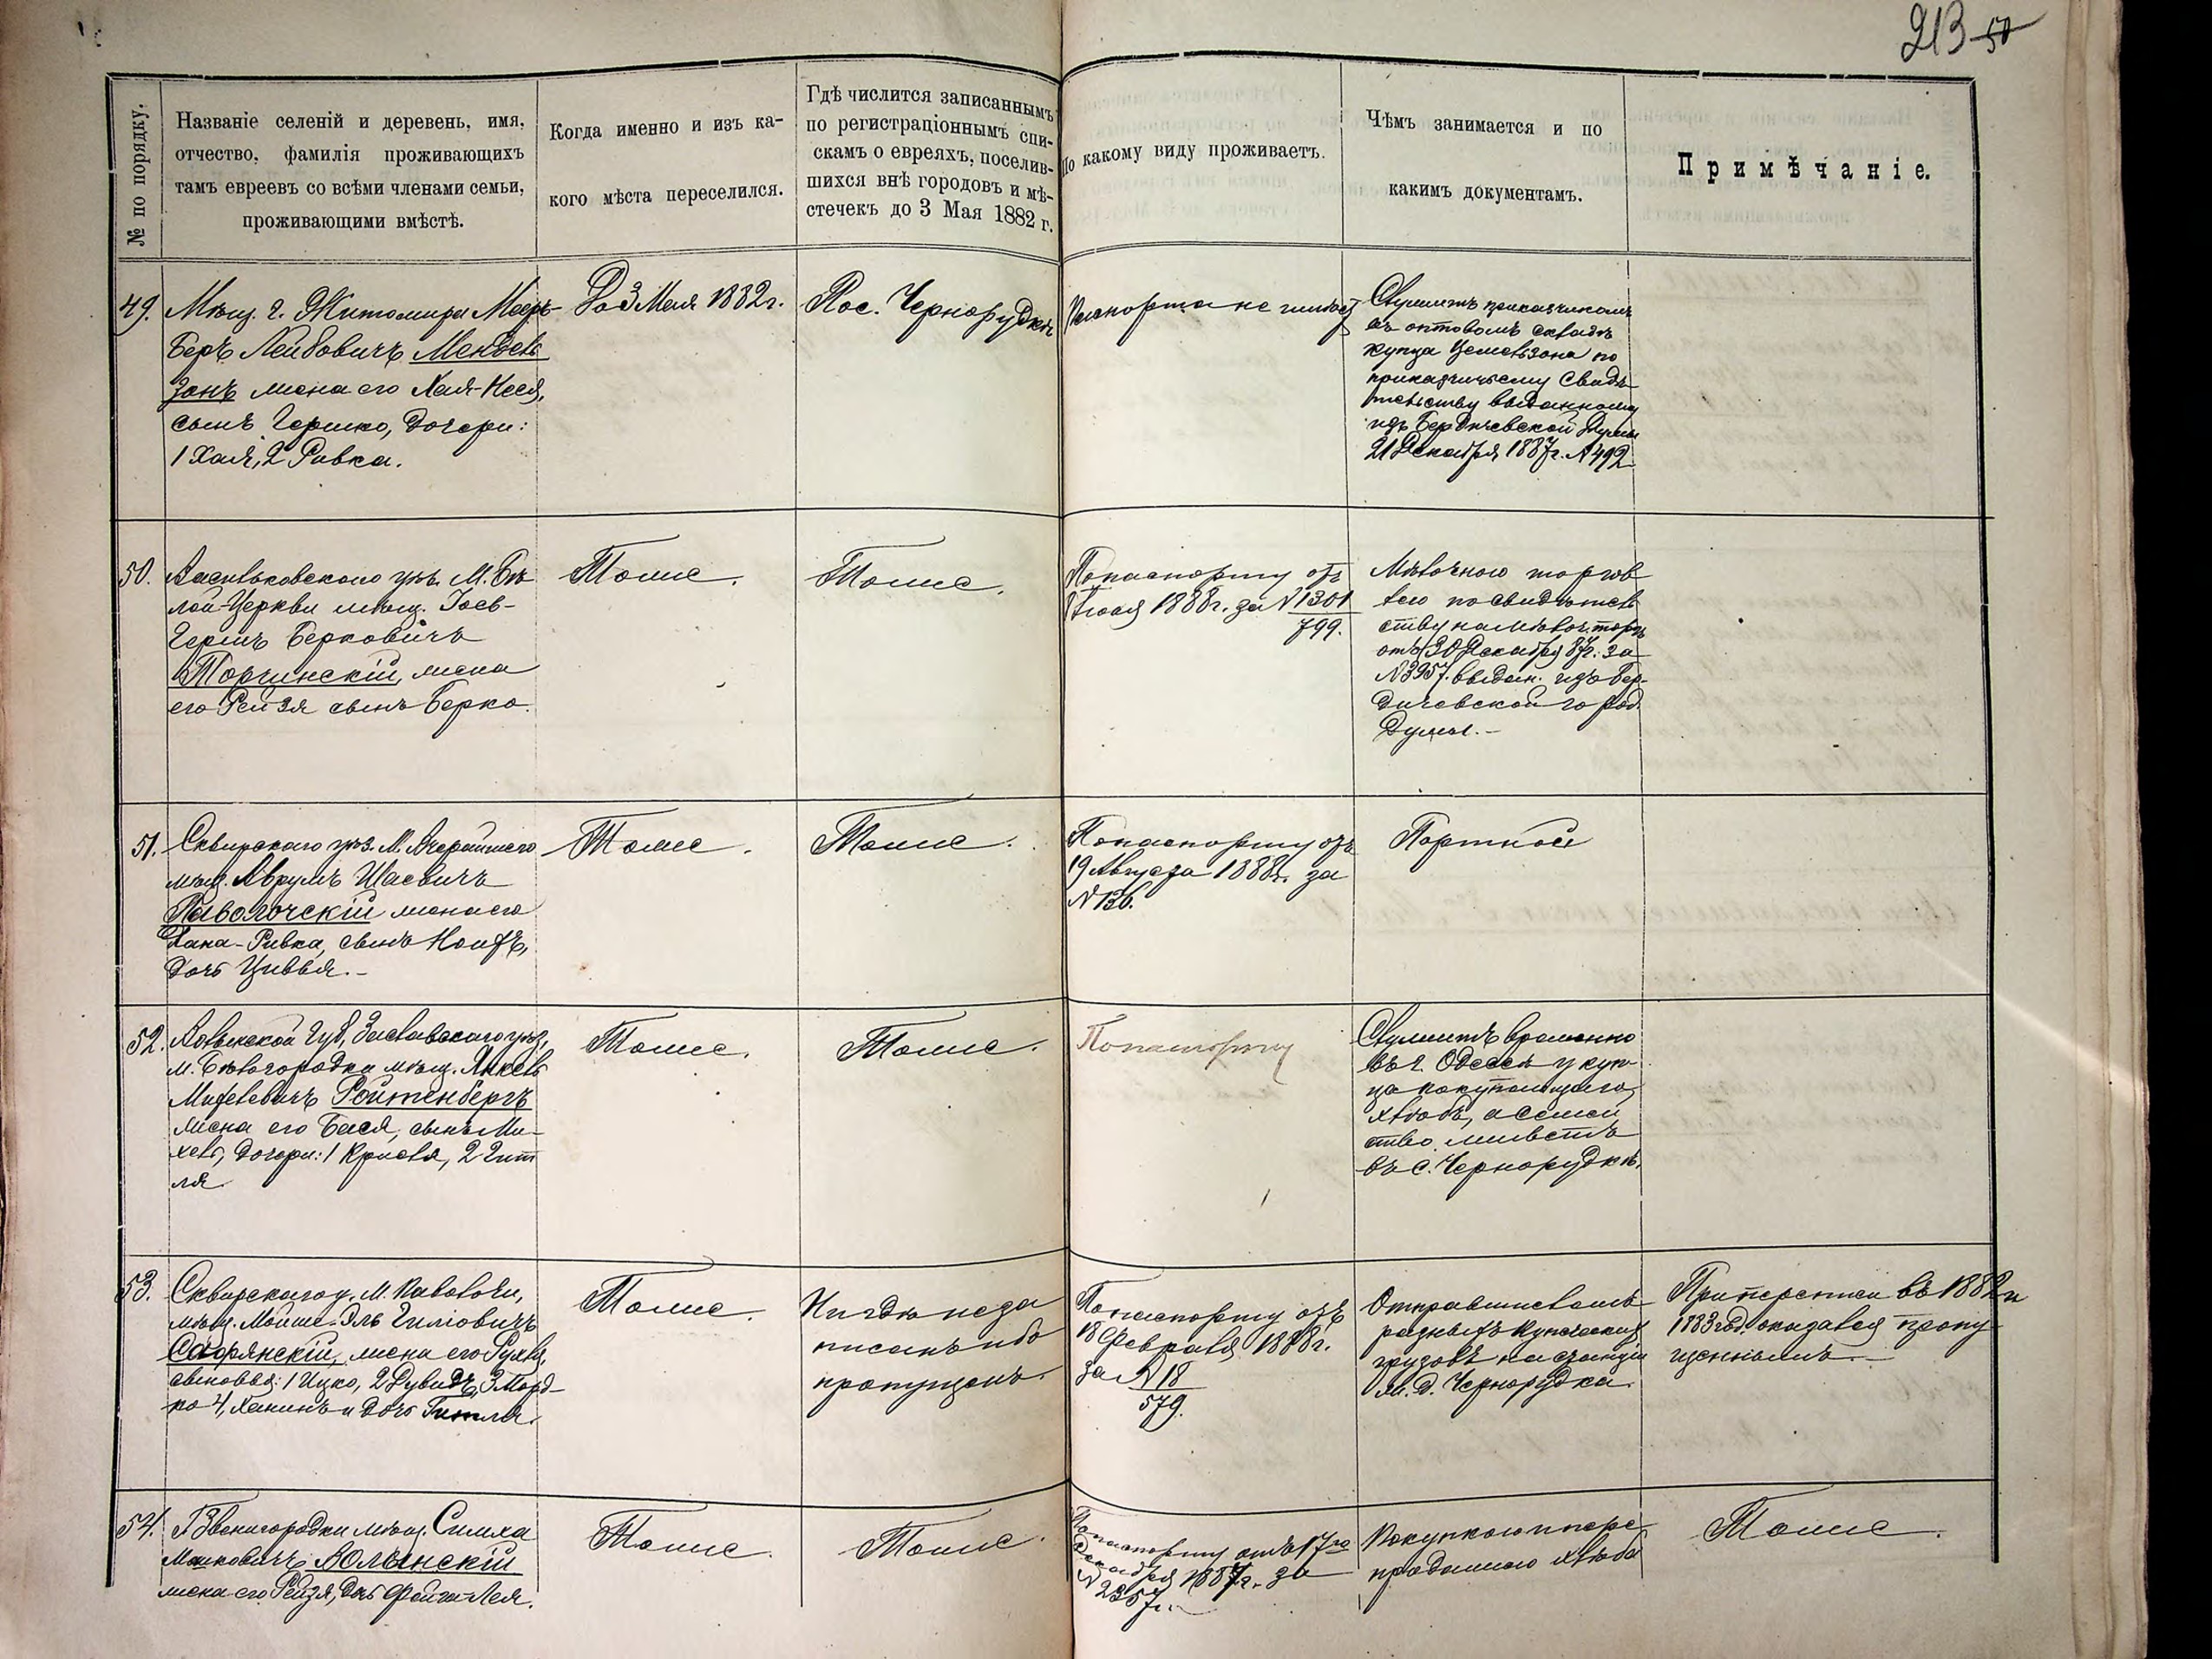 213 50
№ по порядку.
Названіе селеній и деревень, имя,
отчество, фамилія проживающихъ
тамъ евреевъ со всѣми членами семьи,
проживающими вмѣстѣ.
Когда именно и изъ ка-
кого мѣста переселился.
Гдѣ числится записаннымъ
по регистраціоннымъ спи-
скамъ о евреяхъ, поселив-
шихся внѣ городовъ и мѣ-
стечекъ до 3 Мая 1882 г.
По какому виду проживаетъ.
Чѣмъ занимается и по
какимъ документамъ.
Примѣчаніе.
49.
Мѣщ. г. Житомира Мееръ-
Беръ Лейбовичъ Мендель
зонъ жена его Хая-Неся,
сынъ Гершко, дочери:
1 Хая, 2 Ривка.
До 3 Мая 1882 г.
Пос. Чернорудка
Паспорта не имѣетъ
Служитъ приказчикомъ
въ оптовомъ складѣ
купца по
приказчичьему свидѣ-
тельству выданному
изъ Бердичевской Думы
21 Декабря 1887 г. № 492
50.
Васильковскаго уѣз. М. Бѣ
лой-Церкви мѣщ. Іось-
Гершъ Берковичъ
Торгинскій, жена
его Рейзя сынъ Берко.
Тоже.
Тоже.
По паспорту отъ
1888 г. за № 1301
799.
Мѣлочною торгов
лею по свидѣтель
ству на мѣлоч. торгъ
отъ 30 Декабря 87 г. за
№ 3957. выдан. изъ Бер-
дичевской город.
Думы.-
51.
Сквирскаго уѣз. М.
мѣщ. Аврумъ Шаевичъ
Паволочскій жена его
Хана-Ривка, сынъ
дочь Цивья.-
Тоже.
Тоже.
По паспорту отъ
19 Августа 1888 г. за
№ 136.
Портной
52.
Волынской Губ, Заславскаго уѣз,
м. Бѣлогородка мѣщ. Янкель
Михелевичъ Ройтенбергъ
жена его Бася, сынъ Ми-
хель, дочери: 1 2 Гит
ля
Тоже.
Тоже.
По паспорту
Служитъ временно
въ г. Одессѣ у куп-
ца покупающаго
хлѣбъ, а семей
ство живетъ
въ с. Чернорудкѣ.
53.
Сквирскаго у. М. Паволочи,
мѣщ. Мойше-Эль
Сагорянскій, жена его Рухля,
сыновья: 1 Ицко, 2 Дувидъ, 3 Морд-
ко 4, Хаимъ и дочь Гитля.
Тоже.
Нигдѣ не за
писанъ ибо
пропущенъ.
По паспорту отъ
18 Февраля 1888 г.
за № 18
579.
Отправительствомъ
разныхъ купеческихъ
грузовъ на станціи
ж. д. Чернорудка.
При переписи въ 1882 и
1883 год. оказался пропу-
щеннымъ.-
54.
Г. Звенигородки мѣщ. Симха
Машковичъ Волынскій
жена его Рейзя, дочь Фейга-Лея.
Тоже.
Тоже.
По паспорту отъ 17го
Декабря 1887 г. за
№ 2357.
Покупкою и пере
продажею хлѣба
Тоже.